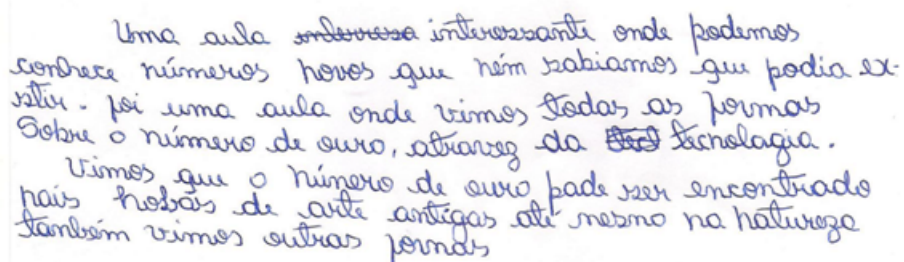 Uma aula interessante onde podemos
conhece números novos que ném sabiamos que podia ex-
istir. foi uma aula onde vimos todas as formas
Sobre o número de ouro, atravez da tecnologia.
Vimos que o número de ouro pode ser encontrado
nais hobais de arte antigas até mesmo na natureza
também vimos outras formas